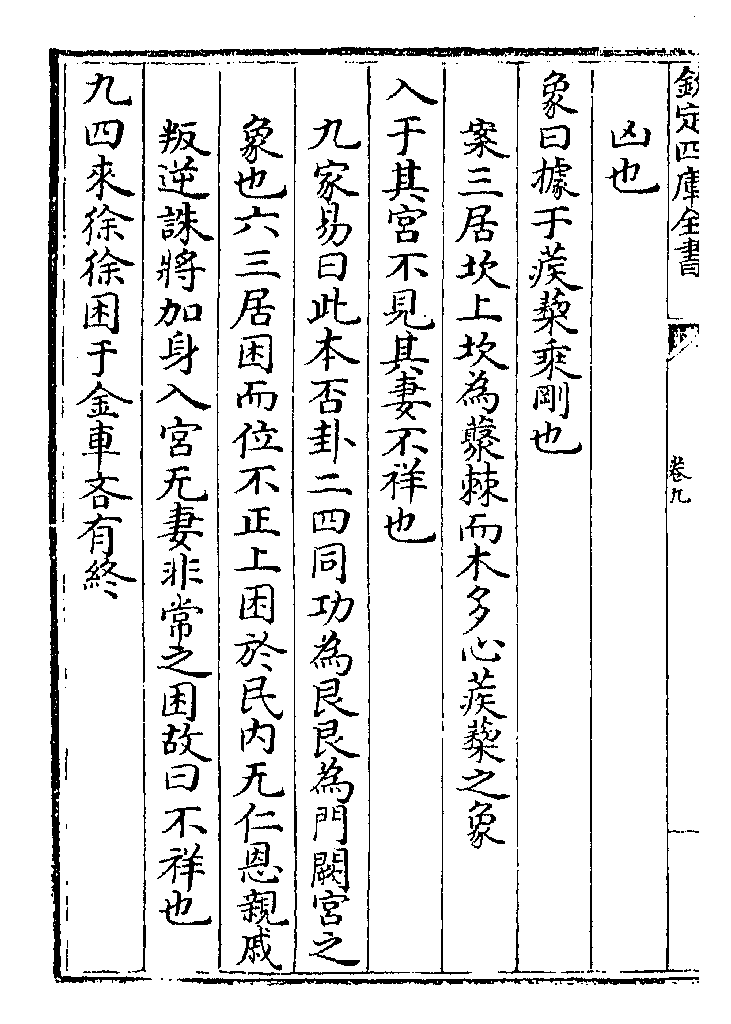 欽定四庫全書
卷九
凶也
象曰據于蒺蔾乗剛也
案三居坎上坎為藂棘而木多心蒺蔾之象
入于其宮不見其妻不祥也
九家易曰此本否卦二四同功為艮艮為門闕宮之
象也六三居困而位不正上困於民内无仁恩親戚
叛逆誅將加身入宮无妻非常之困故曰不祥也
九四來徐徐困于金車吝有終